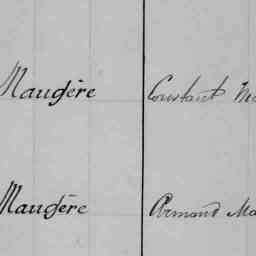 Maugère Constant
Maugère Armand Ma